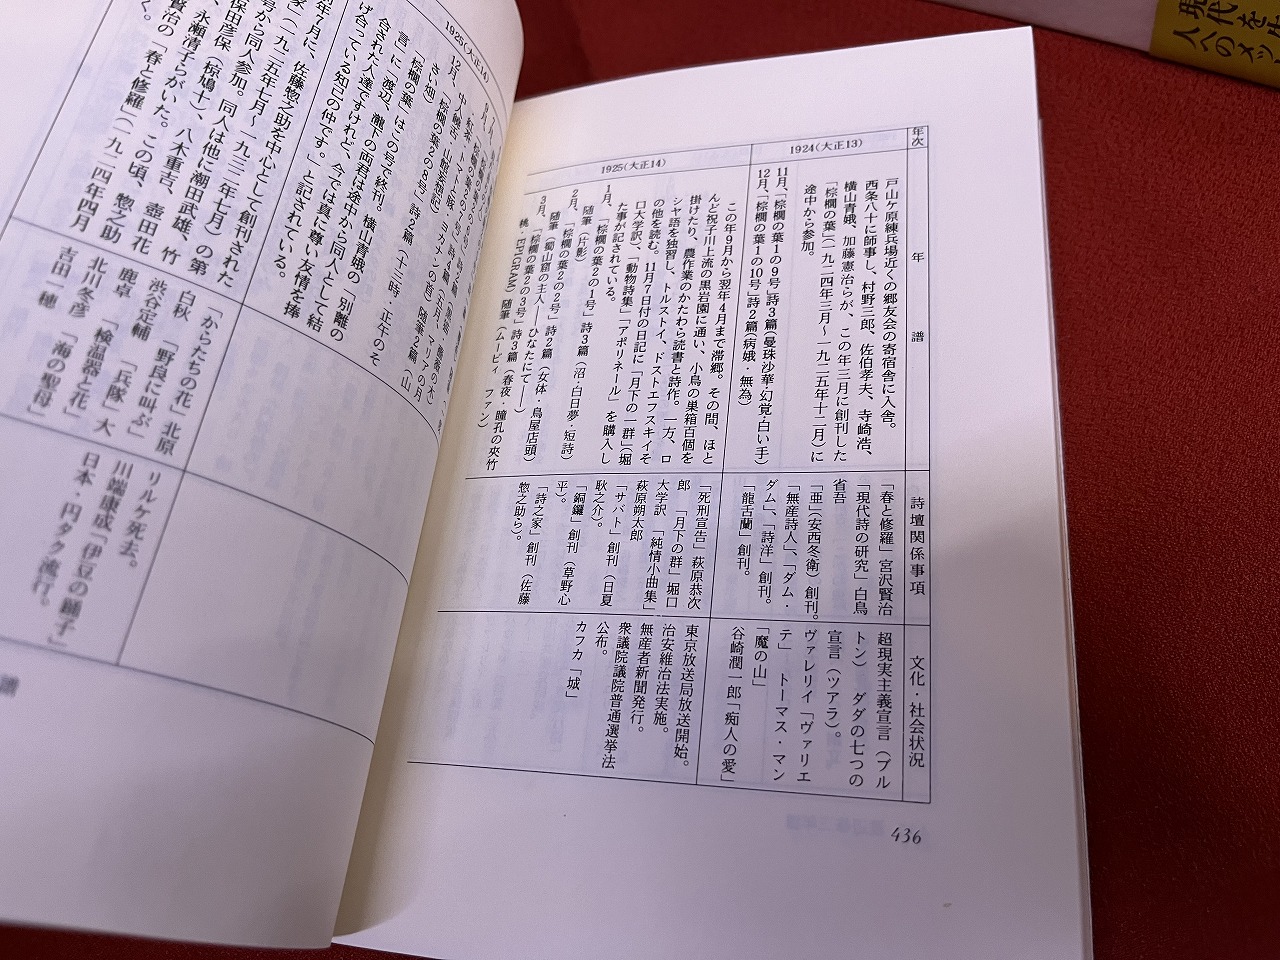 年次
年譜
詩壇関係事項
文化・社会状況
1924(大正13)
戸山ケ原練兵場近くの郷友会の寄宿舎に入舎。
西条八十に師事し、村野三郎、佐伯孝夫、寺崎浩、
横山青娥、加藤憲治らが、この年三月に創刊した
「棕櫚の葉」(一九二四年三月〜一九二五年十二月)に
途中から参加。
11月、「棕櫚の葉1の9号」詩3篇(曼珠沙華・幻覚・白い手)
12月、「棕櫚の葉1の10号」詩2篇(病娥・無為)
「春と修羅」宮沢賢治
「現代詩の研究」白鳥
省吾
「亜」(安西冬衛)創刊。
「無産詩人」、「ダム・
ダム」、「詩洋」創刊。
「龍舌蘭」創刊。
超現実主義宣言(ブル
トン) ダダの七つの
宣言(ツアラ)。
ヴァレリイ「ヴァリエ
テ」 トーマス・マン
「魔の山」
谷崎潤一郎「痴人の愛」
1925(大正14)
この年9月から翌年4月まで滞郷。その間、ほと
んど祝子川上流の黒岩園に通い、小鳥の巣箱百個を
掛けたり、農作業のかたわら読書と詩作。一方、ロ
シヤ語を独習し、トルストイ、ドストエフスキイそ
の他を読む。11月7日付の日記に「月下の一群」(堀
口大学訳)、「動物詩集」「アポリネール」を購入し
た事が記されている。
1月、「棕櫚の葉2の1号」詩3篇(沼・白日夢・短詩)
随筆(片影)
2月、「棕櫚の葉2の2号」詩2篇(女体・鳥屋店頭)
随筆(蜀山窟の主人――ひなたにて――)
3月、「棕櫚の葉2の3号」詩3篇(春夜・瞳孔の夾竹
桃・EPIGRAM)随筆(ムービィ ファン)
「死刑宣告」萩原恭次
郎 「月下の群」堀口
大学訳 「純情小曲集」
萩原朔太郎
「サバト」創刊(日夏
耿之介)。
「銅鑼」創刊(草野心
平)。
「詩之家」創刊(佐藤
惣之助ら)。
東京放送局放送開始。
治安維持法実施。
無産者新聞発行。
衆議院議院普通選挙法
公布。
カフカ「城」
436
1925(大正14)
12月、「棕櫚の葉2の8号」詩2篇(十三時・正午のそ
さい畑)
「棕櫚の葉」はこの号で終刊。横山青娥の「別離の
言」に「渡辺、瀧下の両君は途中から同人として結
合された人達ですけれど、今では真に尊い友情を捧
げ合っている知己の仲です。」と記されている。
年7月に、佐藤惣之助を中心として創刊された
家」(一九二五年七月〜一九三二年七月)の第
号から同人参加。同人は他に潮田武雄、竹
保田彦保(椋鳩十)、八木重吉、壺田花
、永瀬清子らがいた。この頃、惣之助
賢治の「春と修羅」(一九二四年四月
く。
「からたちの花」北原
白秋 「野良に叫ぶ」
渋谷定輔 「兵隊」大
鹿卓 「検温器と花」
北川冬彦 「海の聖母」
吉田一穂
リルケ死去。
川端康成「伊豆の踊子」
日本・円タク流行。
譜
現代人への